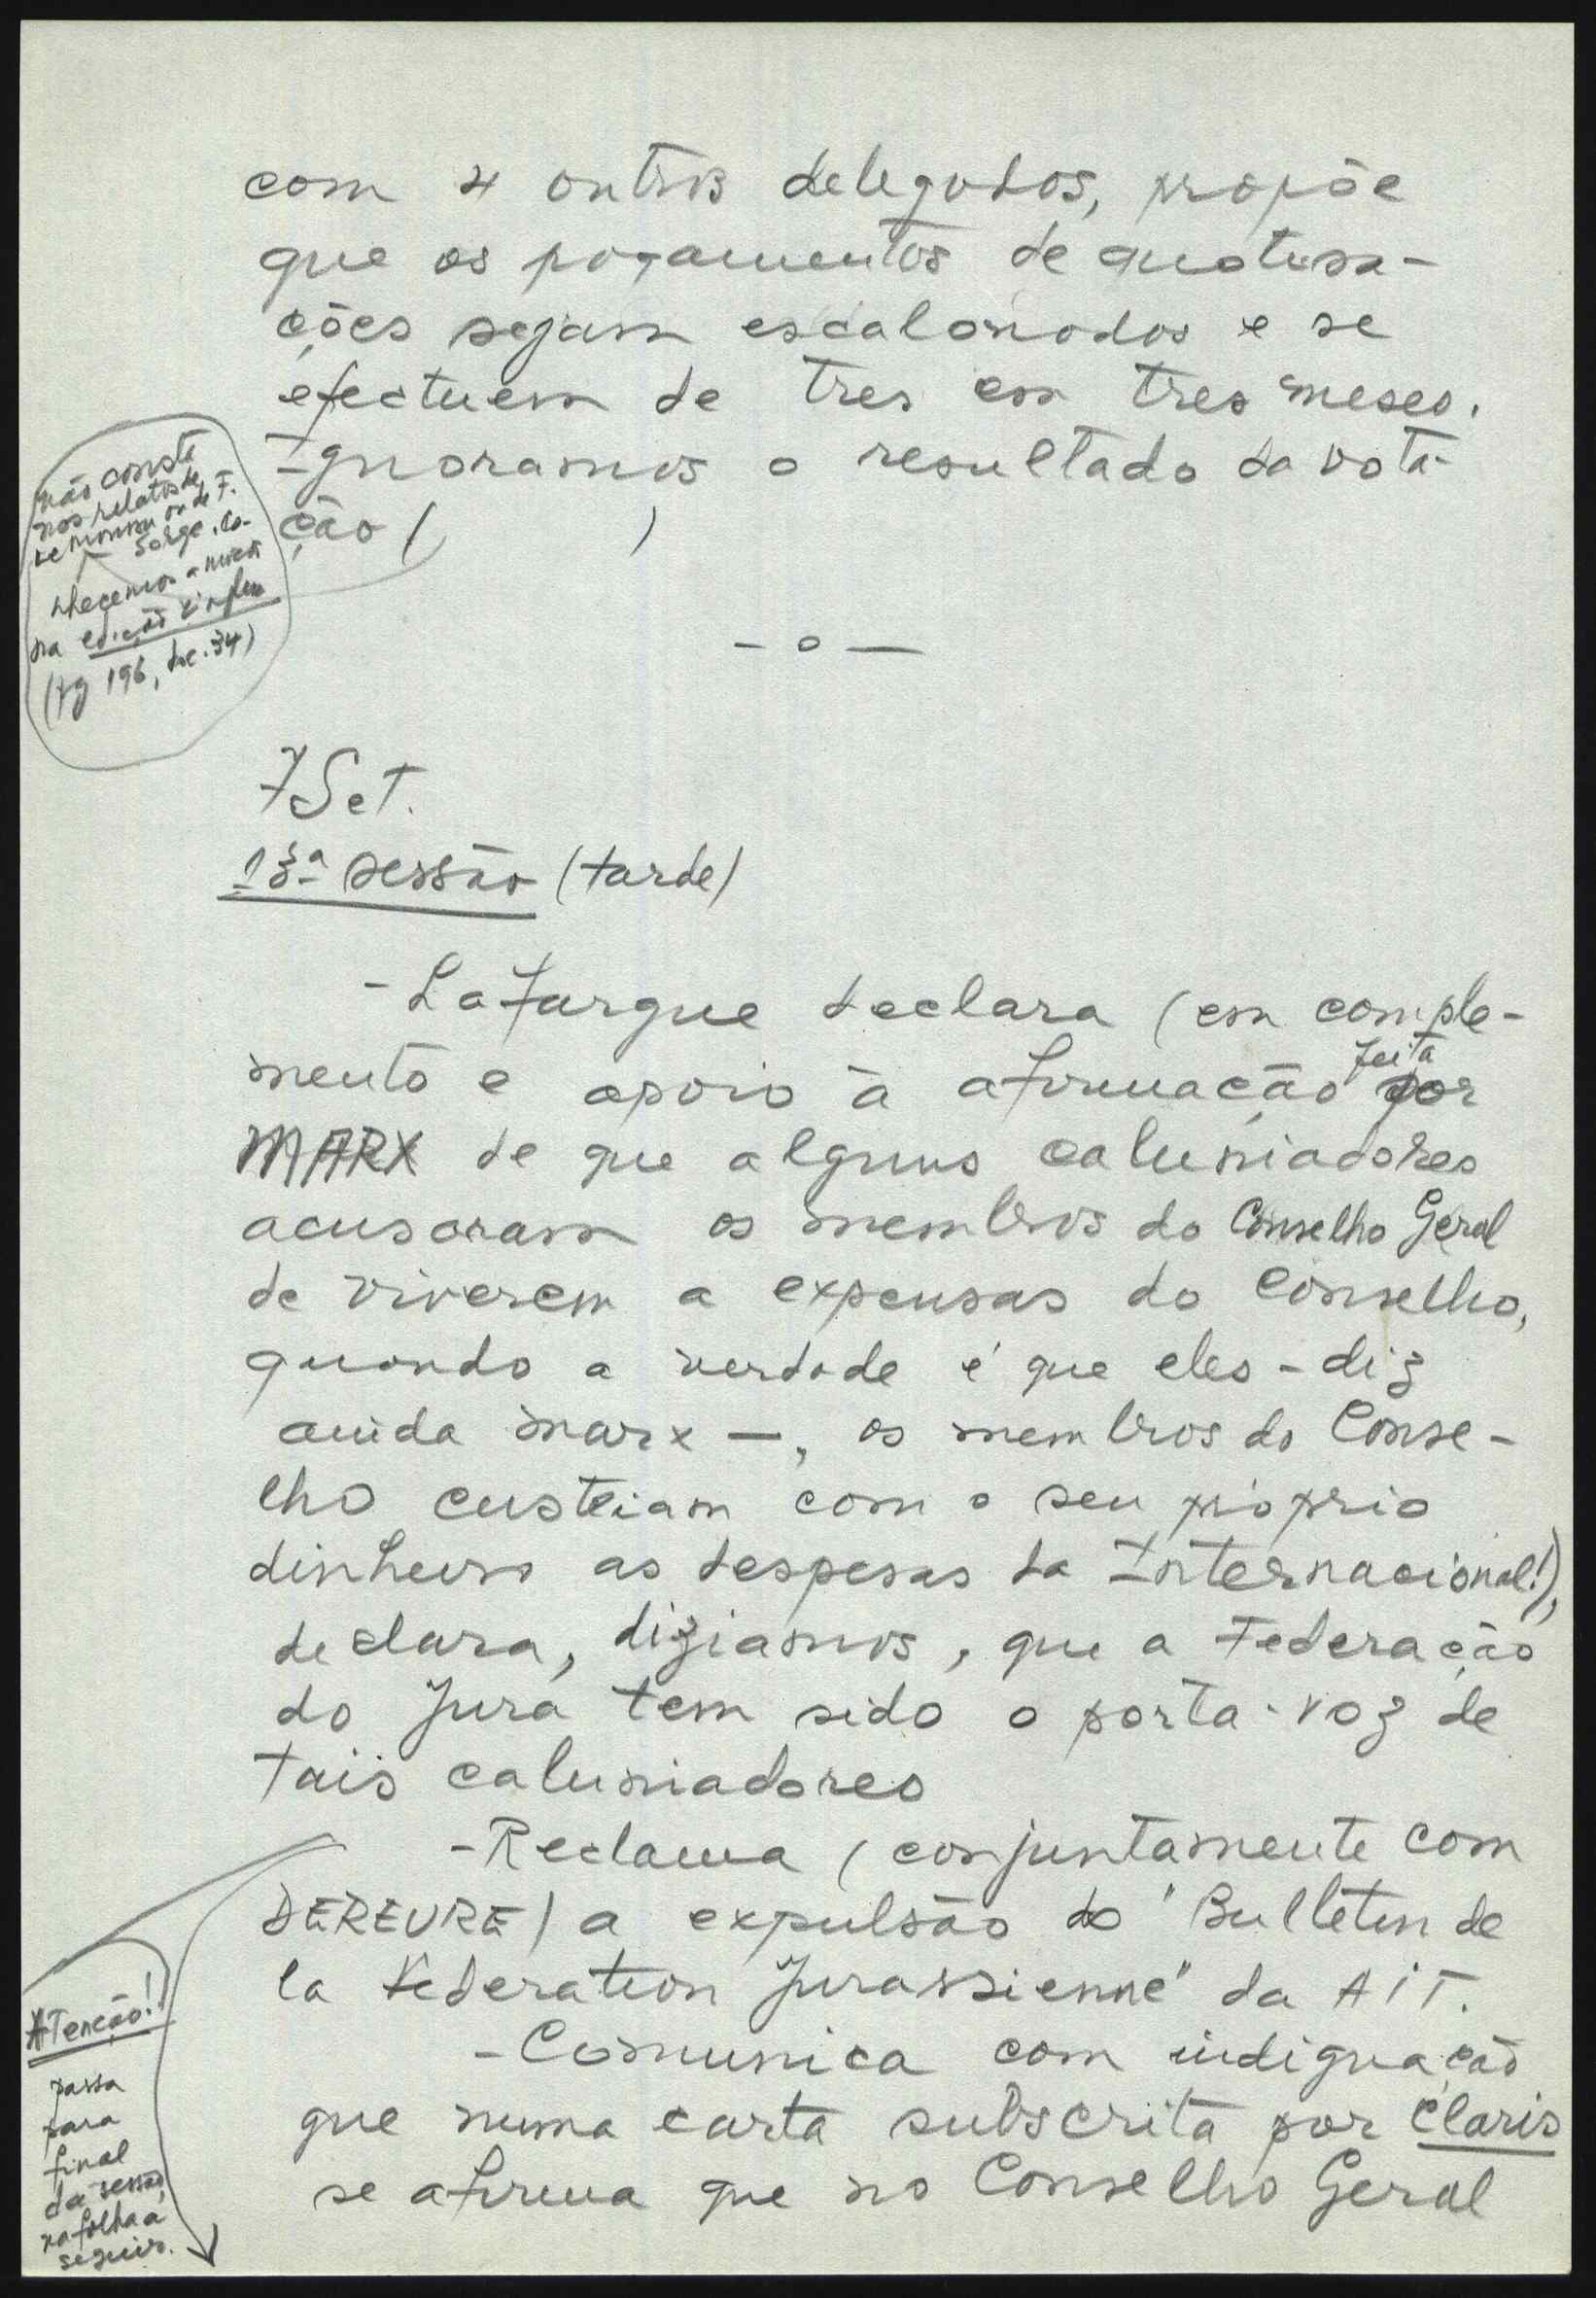 com 4 outros delegados, propõe
que os pagamentos de quotiza-
ções sejam escalonados e se
efectuem de tres em tres meses.
Ignoramos o resultado da vota-
ção ( )
não consta
nos relatos de
ou de F.
Sorge. Co-
nhecemos a
na edição
(pg 196, doc. 34)
- o -
7 Set.
13ª sessão (tarde)
- Lafargue declara (em comple-
mento e apoio à afirmação feita por
MARX de que alguns caluniadores
acusaram os membros do Conselho Geral
de viverem a expensas do Conselho,
quando a verdade é que eles - diz
ainda Marx -, os membros do Conse-
lho custeiam com o seu próprio
dinheiro as despesas da Internacional!),
declara, diziamos, que a Federação
do Jura tem sido o porta-voz de
tais caluniadores
- Reclama (conjuntamente com
DEREURE) a expulsão do "Bulletin de
la Federation Jurassienne" da AIT.
- Comunica com indignação
que numa carta subscrita por Claris
se afirma que no Conselho Geral
ATenção!
passa
para
final
da sessão,
na folha a
seguir.